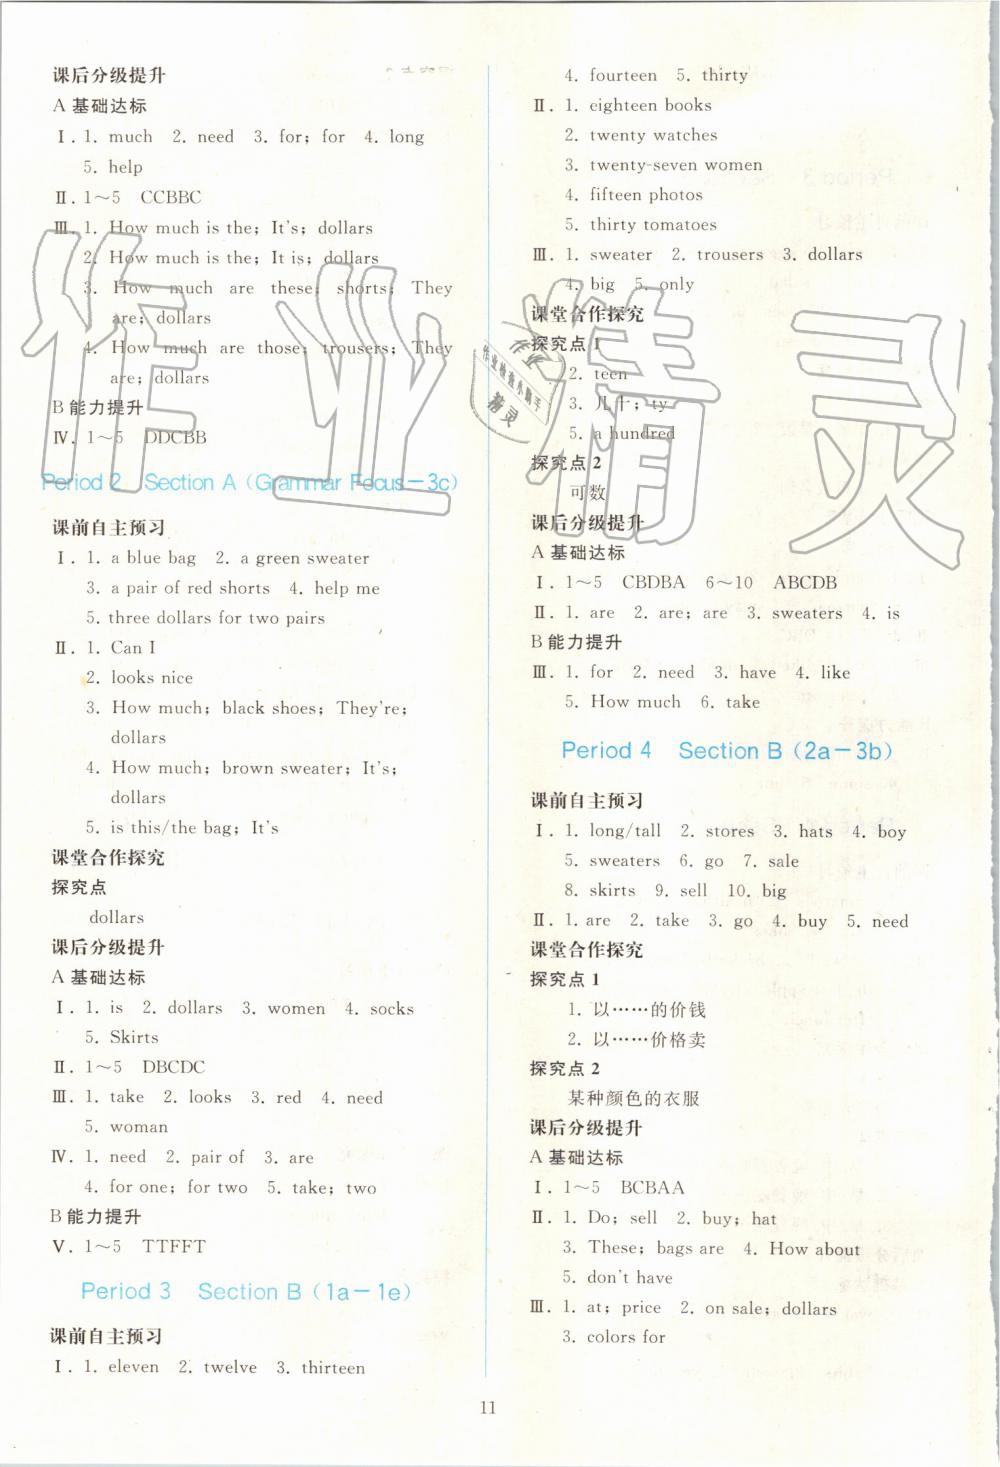 课后分级提升
A 基础达标
Ⅰ. 1. much 2. need 3. for; for 4. long
5. help
Ⅱ. 1～5 CCBBC
Ⅲ. 1. How much is the; It's; dollars
2. How much is the; It is; dollars
3. How much are these; shorts; They
are; dollars
4. How much are those; trousers; They
are; dollars
B 能力提升
Ⅳ. 1～5 DDCBB
Period 2 Section A (Grammar Focus－3c)
课前自主预习
Ⅰ. 1. a blue bag 2. a green sweater
3. a pair of red shorts 4. help me
5. three dollars for two pairs
Ⅱ. 1. Can I
2. looks nice
3. How much; black shoes; They're;
dollars
4. How much; brown sweater; It's;
dollars
5. is this/the bag; It's
课堂合作探究
探究点
dollars
课后分级提升
A 基础达标
Ⅰ. 1. is 2. dollars 3. women 4. socks
5. Skirts
Ⅱ. 1～5 DBCDC
Ⅲ. 1. take 2. looks 3. red 4. need
5. woman
Ⅳ. 1. need 2. pair of 3. are
4. for one; for two 5. take; two
B 能力提升
Ⅴ. 1～5 TTFFT
Period 3 Section B (1a－1e)
课前自主预习
Ⅰ. 1. eleven 2. twelve 3. thirteen
4. fourteen 5. thirty
Ⅱ. 1. eighteen books
2. twenty watches
3. twenty-seven women
4. fifteen photos
5. thirty tomatoes
Ⅲ. 1. sweater 2. trousers 3. dollars
4. big 5. only
课堂合作探究
探究点 1
2. teen
3. 几十; ty
5. a hundred
探究点 2
可数
课后分级提升
A 基础达标
Ⅰ. 1～5 CBDBA 6～10 ABCDB
Ⅱ. 1. are 2. are; are 3. sweaters 4. is
B 能力提升
Ⅲ. 1. for 2. need 3. have 4. like
5. How much 6. take
Period 4 Section B (2a－3b)
课前自主预习
Ⅰ. 1. long/tall 2. stores 3. hats 4. boy
5. sweaters 6. go 7. sale
8. skirts 9. sell 10. big
Ⅱ. 1. are 2. take 3. go 4. buy 5. need
课堂合作探究
探究点 1
1. 以……的价钱
2. 以……价格卖
探究点 2
某种颜色的衣服
课后分级提升
A 基础达标
Ⅰ. 1～5 BCBAA
Ⅱ. 1. Do; sell 2. buy; hat
3. These; bags are 4. How about
5. don't have
Ⅲ. 1. at; price 2. on sale; dollars
3. colors for
11
作业精灵
作业
作业检查小助手
精灵